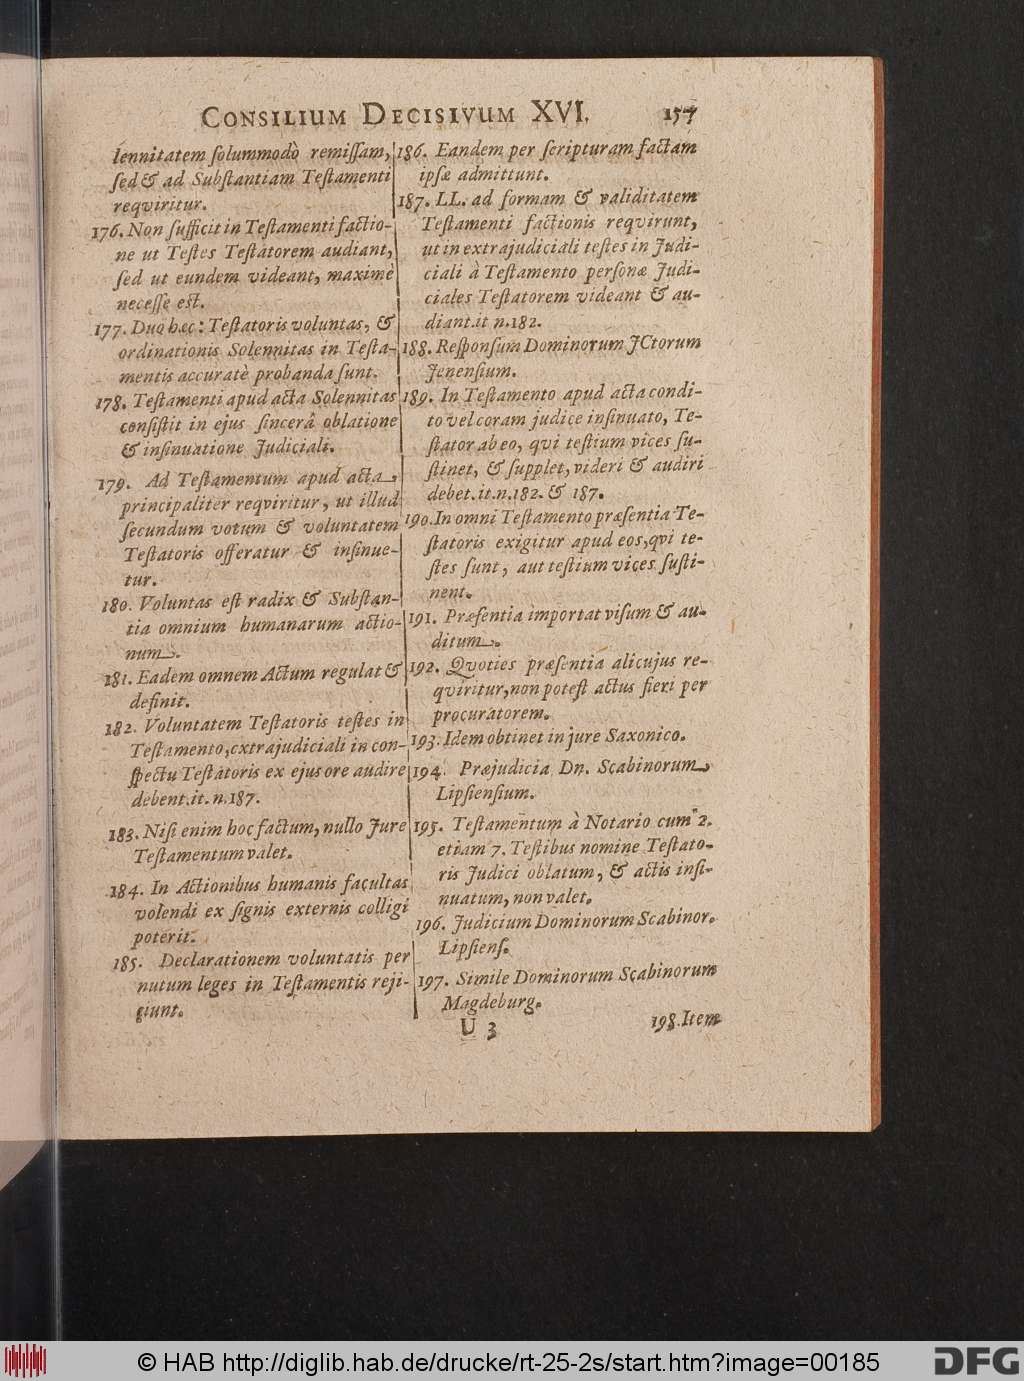 CONSILIUM DECISIVUM XVI. 157
lennitatem ſolummodò remiſſam,
ſed & ad Subſtantiam Teſtamenti
reqviritur.
176. Non ſufficit in Teſtamenti factio-
ne ut Teſtes Teſtatorem audiant,
ſed ut eundem videant, maximè
neceſſe eſt.
177. Duo hæc: Teſtatoris voluntas, &
ordinationis Solennitas in Teſta-
mentis accuratè probanda ſunt.
178. Teſtamenti apud acta Solennitas
conſiſtit in ejus ſincerâ oblatione
& inſinuatione Judiciali.
179. Ad Teſtamentum apud acta
principaliter reqviritur, ut illud
ſecundum votum & voluntatem
Teſtatoris offeratur & inſinue-
tur.
180. Voluntas eſt radix & Subſtan-
tia omnium humanarum actio-
num.
181. Eadem omnem Actum regulat &
definit.
182. Voluntatem Teſtatoris teſtes in
Teſtamento, extrajudiciali in con-
ſpectu Teſtatoris ex ejus ore audire
debent. it. n. 187.
183. Niſi enim hoc factum, nullo Jure
Teſtamentum valet.
184. In Actionibus humanis facultas
volendi ex ſignis externis colligi
poterit.
185. Declarationem voluntatis per
nutum leges in Teſtamentis reji-
ciunt.
186. Eandem per ſcripturam factam
ipſæ admittunt.
187. LL. ad formam & validitatem
Teſtamenti factionis reqvirunt,
ut in extrajudiciali teſtes in Judi-
ciali à Teſtamento perſonæ Judi-
ciales Teſtatorem videant & au-
diant. it n. 182.
188. Reſponſum Dominorum JCtorum
Jenenſium.
189. In Teſtamento apud acta condi-
to vel coram judice inſinuato, Te-
ſtator ab eo, qvi teſtium vices ſu-
ſtinet, & ſupplet, videri & audiri
debet. it. n. 182. & 187.
190. In omni Teſtamento præſentia Te-
ſtatoris exigitur apud eos, qvi te-
ſtes ſunt, aut teſtium vices ſuſti-
nent.
191. Præſentia importat viſum & au-
ditum.
192. Qvoties præſentia alicujus re-
qviritur, non poteſt actus fieri per
procuratorem.
193. Idem obtinet in jure Saxonico.
194. Præjudicia Dn. Scabinorum
Lipſienſium.
195. Teſtamentum à Notario cum 2.
etiam 7. Teſtibus nomine Teſtato-
ris Judici oblatum, & actis inſi-
nuatum, non valet.
196. Judicium Dominorum Scabinor.
Lipſienſ.
197. Simile Dominorum Scabinorum
Magdeburg.
U 3 198. Item
© HAB http://diglib.hab.de/drucke/rt-25-2s/start.htm?image=00185 DFG